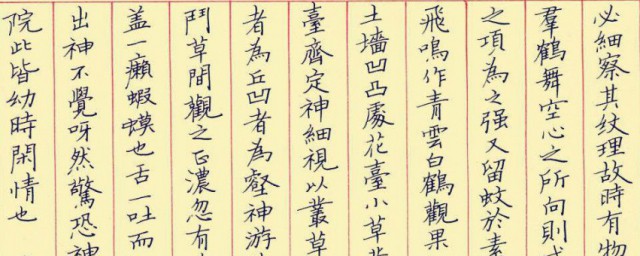 必細察其紋理故時有物
羣鶴舞空心之所向則
之項為之强又留蚊於素
飛鳴作青雲白鶴觀果
土墻凹凸處花臺小草
臺齊定神細視以叢草
者為丘凹者為壑神游
鬥草間觀之正濃忽有
盖一癩蝦蟆也舌一吐而
出神不覺呀然驚恐神
院此皆幼時閑情也